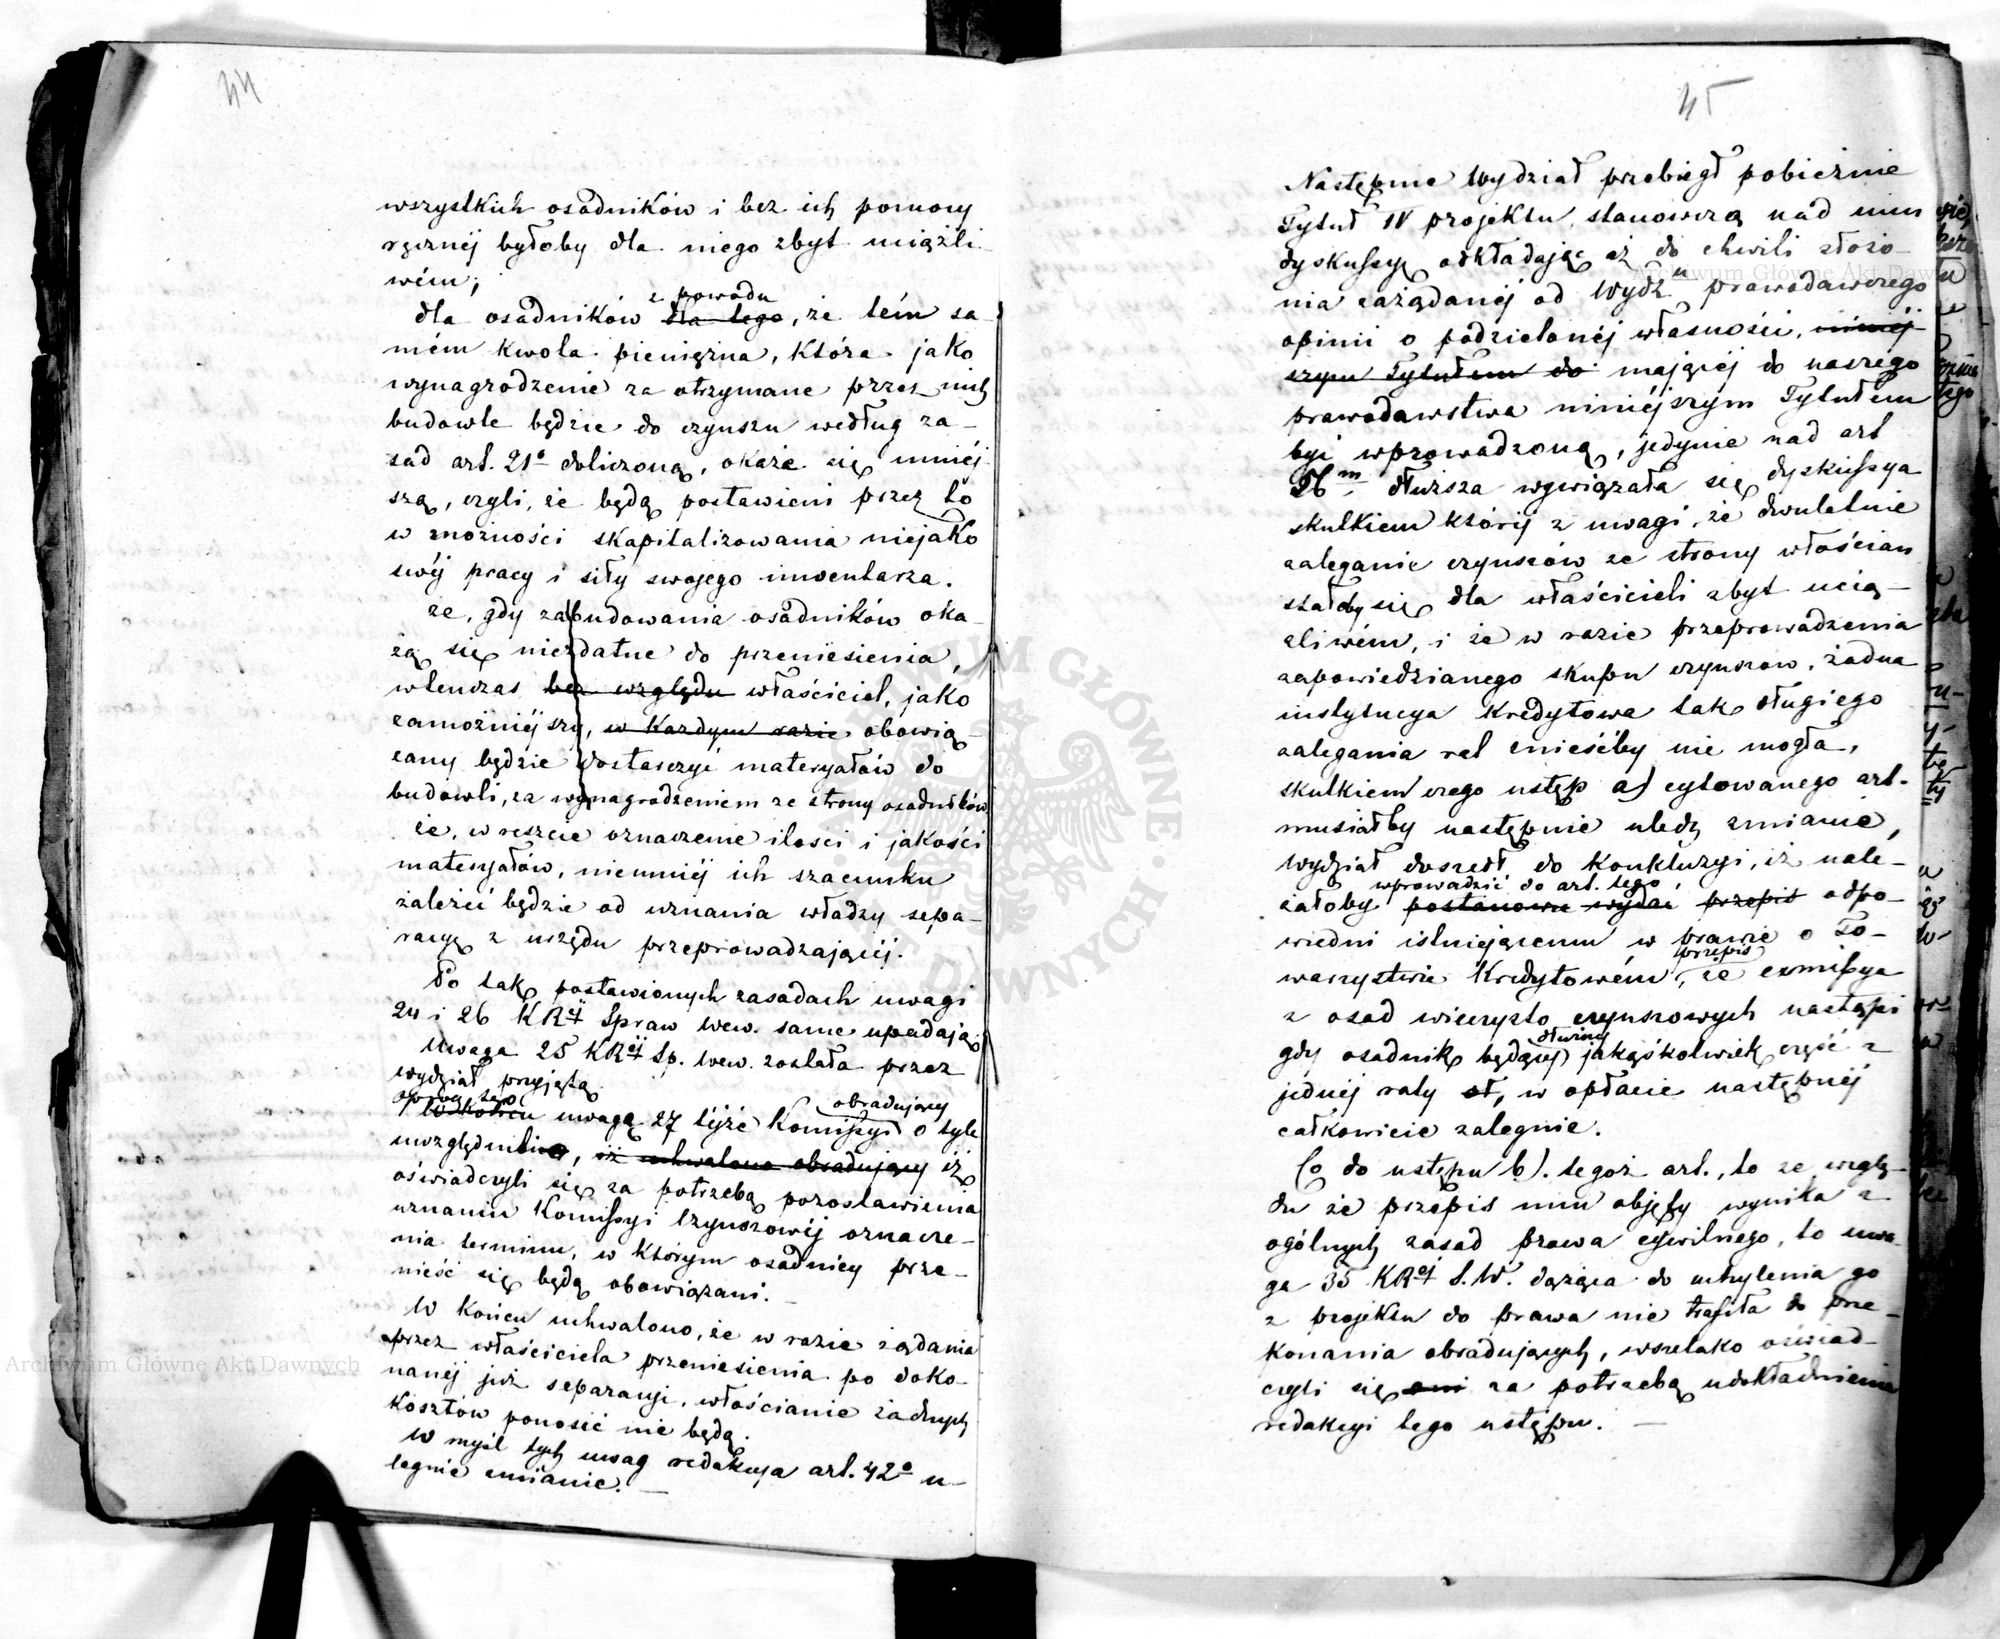 44
wszystkich osadników i bez ich pomocy
ręcznéj byłoby dla niego zbyt uciążli-
wém;
z powodu
dla osadników dla tego, że tém sa-
mém kwota pieniężna, która jako
wynagrodzenie za otrzymane przez nich
budowle będzie do czynszu według za-
sad art. 21º doliczoną, okaże się mniéj-
szą, czyli, że będą postawieni przez to
w możności skapitalizowania niejako
swéj pracy i siły swojego inwentarza.
że, gdy zabudowania osadników oka-
żą się niezdatne do przeniesienia,
wtenczas bez względu właściciel, jako
zamożniéjszy, w każdym razie obowią-
zany będzie dostarczyć materyałów do
budowli, za wynagrodzeniem ze strony osadników
że, w reszcie oznaczenie ilości i jakości
materyałów, niemniéj ich szacunku
zależéć będzie od uznania władzy sepa-
racyę z urzędu przeprowadzającéj.
Po tak postawionych zasadach uwagi
24 i 26 KRéj Spraw Wew. same upadają
Uwaga 25 KRéj Sp. Wew. została przez
wydział przyjętą.
W końcu uwagę 27 téjże Kommissyi obradujący o tyle
uwzględnili, iż uchwalono obradujący iż
oświadczyli się za potrzebą pozostawienia
uznaniu Kommissyi Czynszowéj oznacze-
nia terminu, w którym osadnicy prze-
nieść się będą obowiązani. –
W końcu uchwalono, że w razie żądania
przez właściciela przeniesienia po doko-
nanéj już separacyi, włościanie żadnych
kosztów ponosić nie będą.
W myśl tych uwag redakcya art. 42º u-
legnie zmianie. –
45
Następnie Wydział przebiegł pobieżnie
Tytuł IV projektu, stanowczą nad nim
dyskussyę odkładając aż do chwili złoże-
nia zażądanéj od Wydzu prawodawczego
opinii o podzielonéj własności, niniéj-
szym Tytułem do mającéj do naszego
prawodawstwa niniéjszym Tytułem
być wprowadzoną, jedynie nad art
56m. dłuższa wywiązała się dyskussya
skutkiem któréj z uwagi, że dwuletnie
zaleganie czynszów ze strony włościan
stałoby się dla właścicieli zbyt ucią-
żliwém, i że w razie przeprowadzenia
zapowiedzianego skupu czynszów, żadna
instytucya kredytowa tak długiego
zalegania rat znieśćby nie mogła,
skutkiem czego ustęp a) cytowanego art.
musiałby następnie uledz zmianie,
Wydział doszedł do konkluzyi, iż nale-
wprowadzić do art. tego
żałoby postanowić wydać przepis odpo-
wiedni istniejącemu w prawie o To-
przepis
warzystwie Kredytowém, że exmissya
z osad wieczysto czynszowych nastąpi
dłużny
gdy osadnik będący jakąśkolwiek część z
jednéj raty, w opłacie następnéj
całkowicie zalegnie.
Co do ustępu b). tegoż art., to ze wzglę-
du że przepis nim objęty wynika z
ogólnych zasad prawa cywilnego, to uwa-
ga 35 KRéj S.W. dążąca do uchylenia go
z projektu do prawa nie trafiła do prze-
konania obradujących, wszelako oświad-
czyli się oni za potrzebą udokładnienia
redakcyi tego ustępu. –
Archiwum Główne Akt Dawnych
Archiwum Główne Akt Dawnych
ARCHIWUM GŁÓWNE AKT DAWNYCH